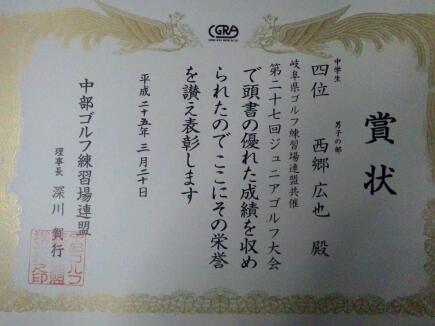 CGRA
賞状
中学生 男子の部
四位 西郷広也 殿
岐阜県ゴルフ練習場連盟共催
第二十七回ジュニアゴルフ大会
で頭書の優れた成績を収め
られたのでここにその栄誉
を讃え表彰します
平成二十五年 三月二十日
中部ゴルフ練習場連盟
理事長 深川 行